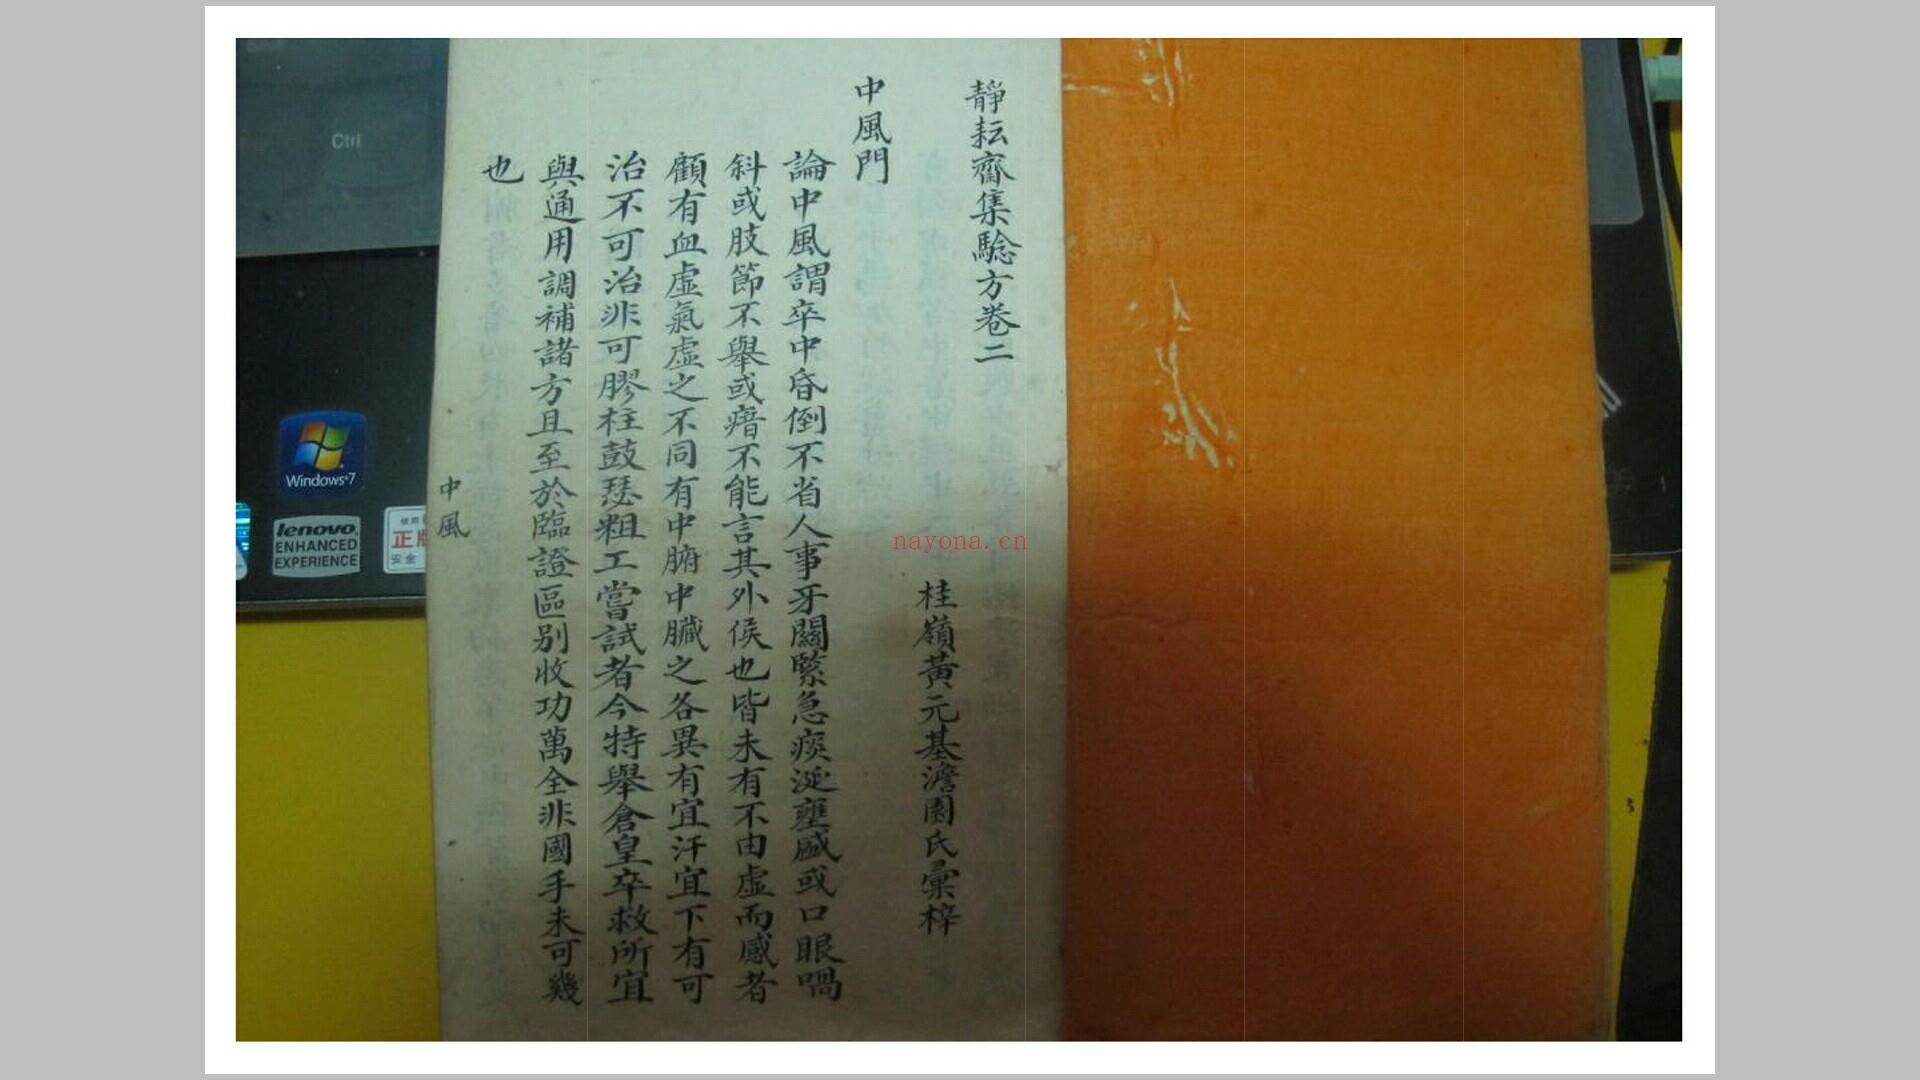 靜耘齋集驗方卷二
桂嶺黃元基澹園氏彙梓
中風門
論中風謂卒中昏倒不省人事牙關緊急痰涎壅盛或口眼喎
斜或肢節不舉或瘖不能言其外候也皆未有不由虛而感者
顧有血虛氣虛之不同有中腑中臟之各異有宜汗宜下有可
治不可治非可膠柱鼓瑟粗工嘗試者今特舉倉皇卒救所宜
與通用調補諸方且至於臨證區别收功萬全非國手未可幾
也
中風
nayona.cn
Ctrl
Windows 7
lenovo
ENHANCED
EXPERIENCE
正版
安全